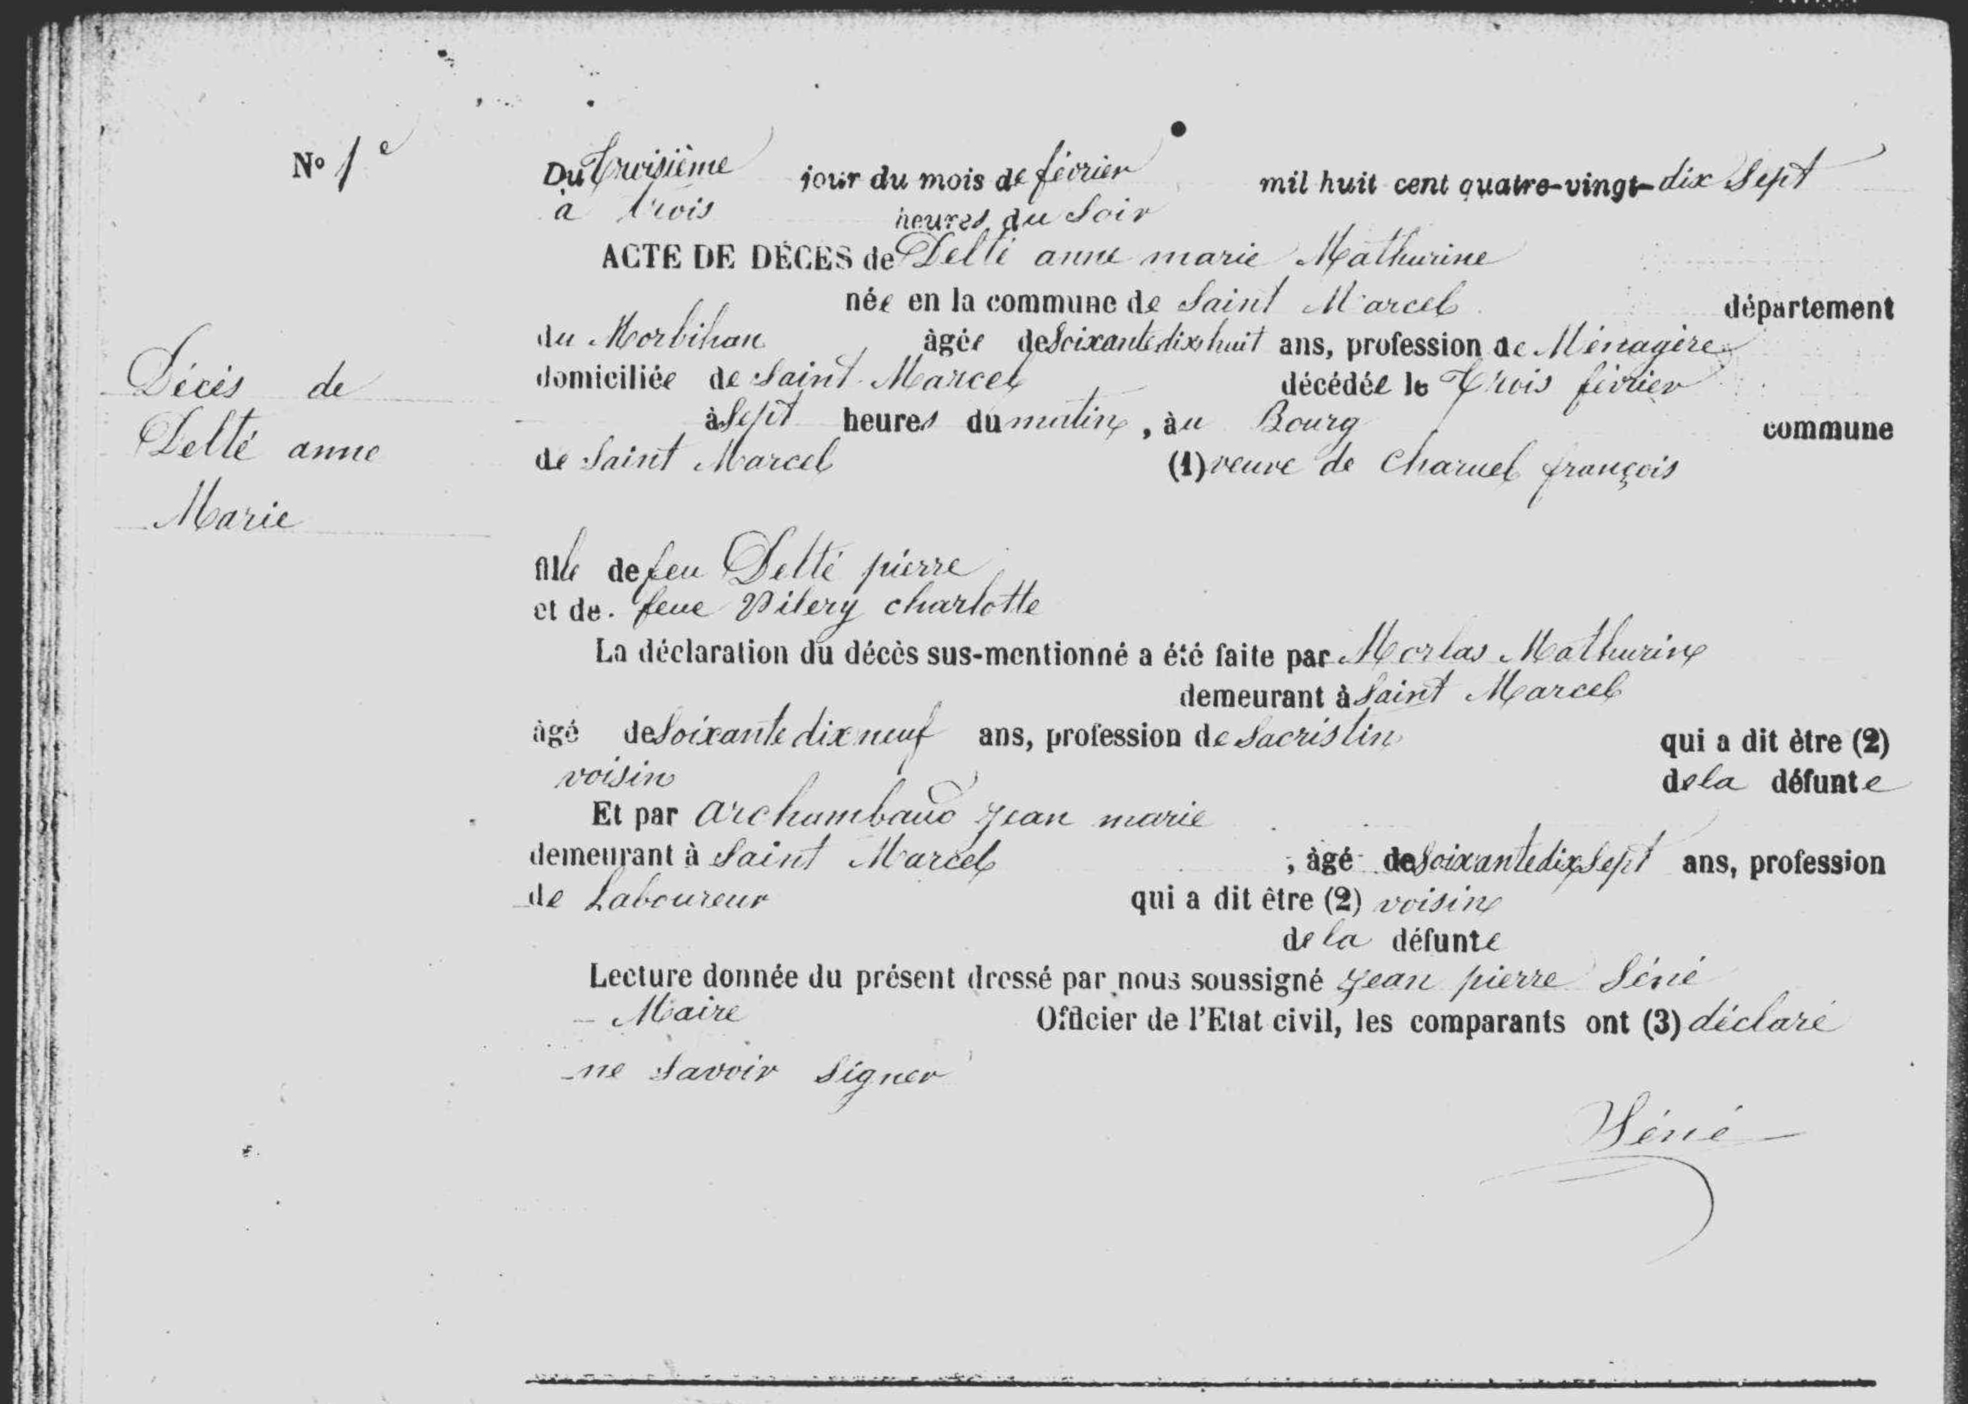 N° 1e
Du Troisième jour du mois de février mil huit cent quatre-vingt-dix Sept
à trois heures du Soir
ACTE DE DÉCÈS de Delté anne marie Mathurine
née en la commune de Saint Marcel département
du Morbihan âgée de Soixante dix huit ans, profession de Ménagère
domiciliée de Saint Marcel décédée le Trois février
à Sept heures du matin, au Bourg commune
de Saint Marcel (1) veuve de Charuel françois
Décès de
Delté anne
Marie
fille de feu Delté pierre
et de feue Vilery charlotte
La déclaration du décès sus-mentionné a été faite par Morlas Mathurin
demeurant à Saint Marcel
âgé de Soixante dix neuf ans, profession de Sacristin qui a dit être (2)
voisin de la défunte
Et par archambaud jean marie
demeurant à Saint Marcel, âgé de Soixante dix Sept ans, profession
de Laboureur qui a dit être (2) voisin
de la défunte
Lecture donnée du présent dressé par nous soussigné jean pierre Séné
Maire Officier de l'Etat civil, les comparants ont (3) déclaré
ne Savoir Signer
Séné